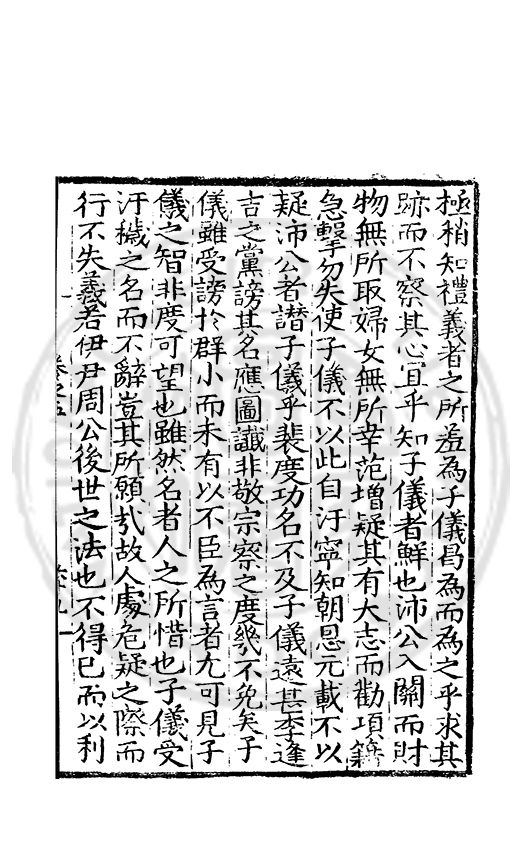 極稍知禮義者之所羞為子儀曷為而為之乎求其
跡而不察其心宜乎知子儀者鮮也沛公入關而財
物無所取婦女無所幸范增疑其有大志而勸項籍
急擊勿失使子儀不以此自汙寧知朝恩元載不以
疑沛公者譖子儀乎裴度功名不及子儀遠甚李逢
吉之黨謗其名應圖讖非敬宗察之度幾不免矣子
儀雖受謗於群小而未有以不臣為言者尤可見子
儀之智非度可望也雖然名者人之所惜也子儀受
汙穢之名而不辭豈其所願㢤故人處危疑之際而
行不失義若伊尹周公後世之法也不得已而以利
卷之五